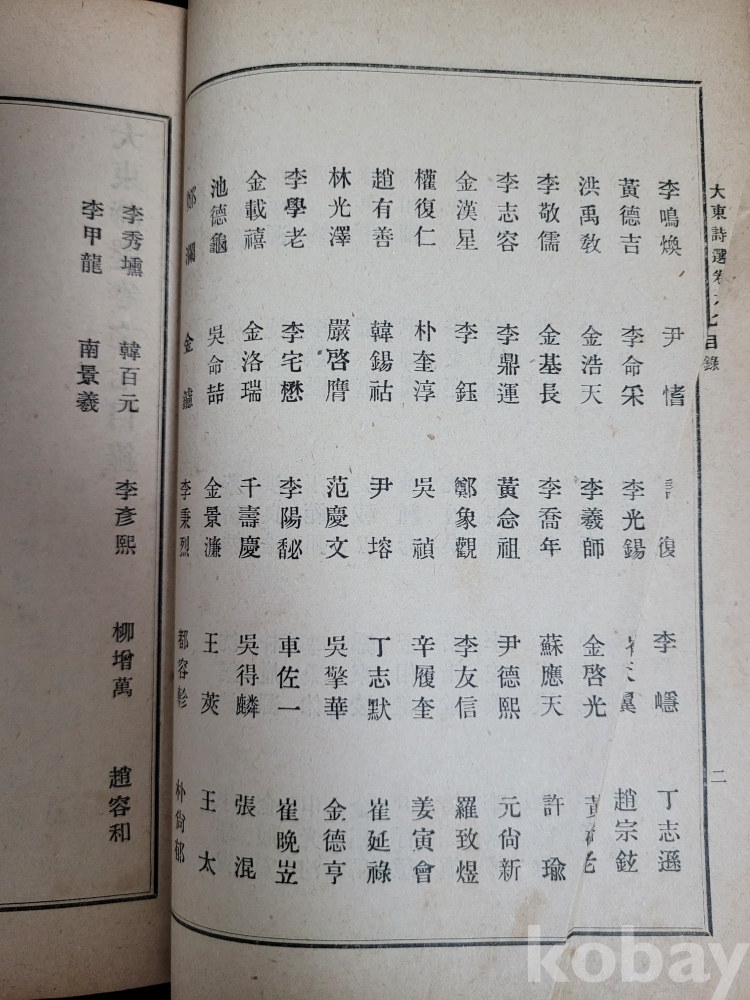 大東詩選卷 目錄
李鳴煥 尹愭 復 李㠅 丁志遜
黃德吉 李命宷 李光錫 翼 趙宗鉉
洪禹敎 金浩天 李羲師 金啓光 黃
李敬儒 金基長 李喬年 蘇應天 許瑜
李志容 李鼎運 黃念祖 尹德熙 元尙新
金漢星 李鈺 鄭象觀 李友信 羅致煜
權復仁 朴奎淳 吳禎 辛履奎 姜寅會
趙有善 韓錫祜 尹塎 丁志默 崔延祿
林光澤 嚴啓膺 范慶文 吳擎華 金德亨
李學老 李宅懋 李陽馝 車佐一 崔晩岦
金載禧 金洛瑞 千壽慶 吳得麟 張混
池德龜 吳命喆 金景濂 王莢 王太
鄭瀾 金 李秉烈 都容軫 朴尙郁
二
李秀壎 韓百元 李彥熙 柳增萬 趙容和
李甲龍 南景羲
kobay